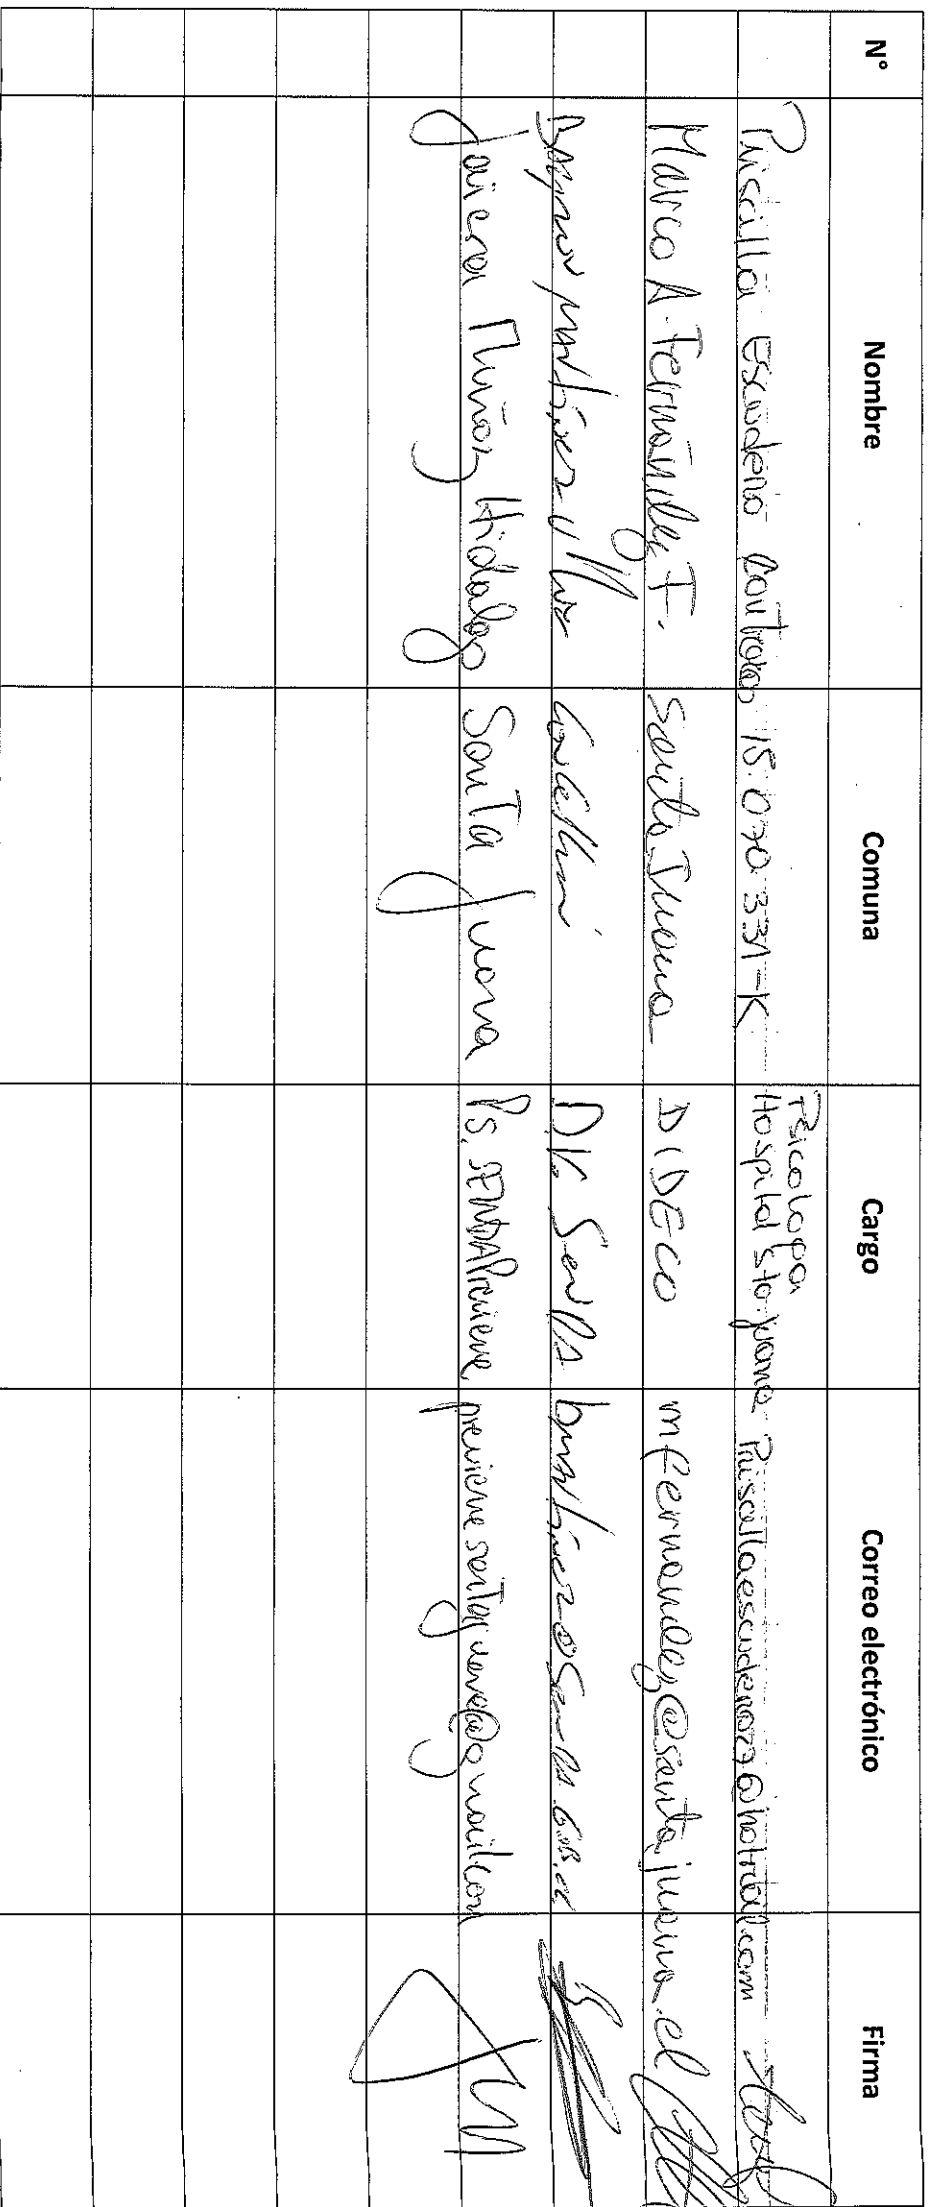 N° Nombre Comuna Cargo Correo electrónico Firma
Priscilla Escudero Contreras 15.070.331-K Psicologa Hospital Sta. Juana Priscillaescudero27@hotmail.com
Marco A. Fernández F. Santa Juana DIDECO mfernandez@santajuana.cl
Martínez
Javiera Muñoz Hidalgo Santa Juana Ps. SENDA Previene previenesantajuana@gmail.com